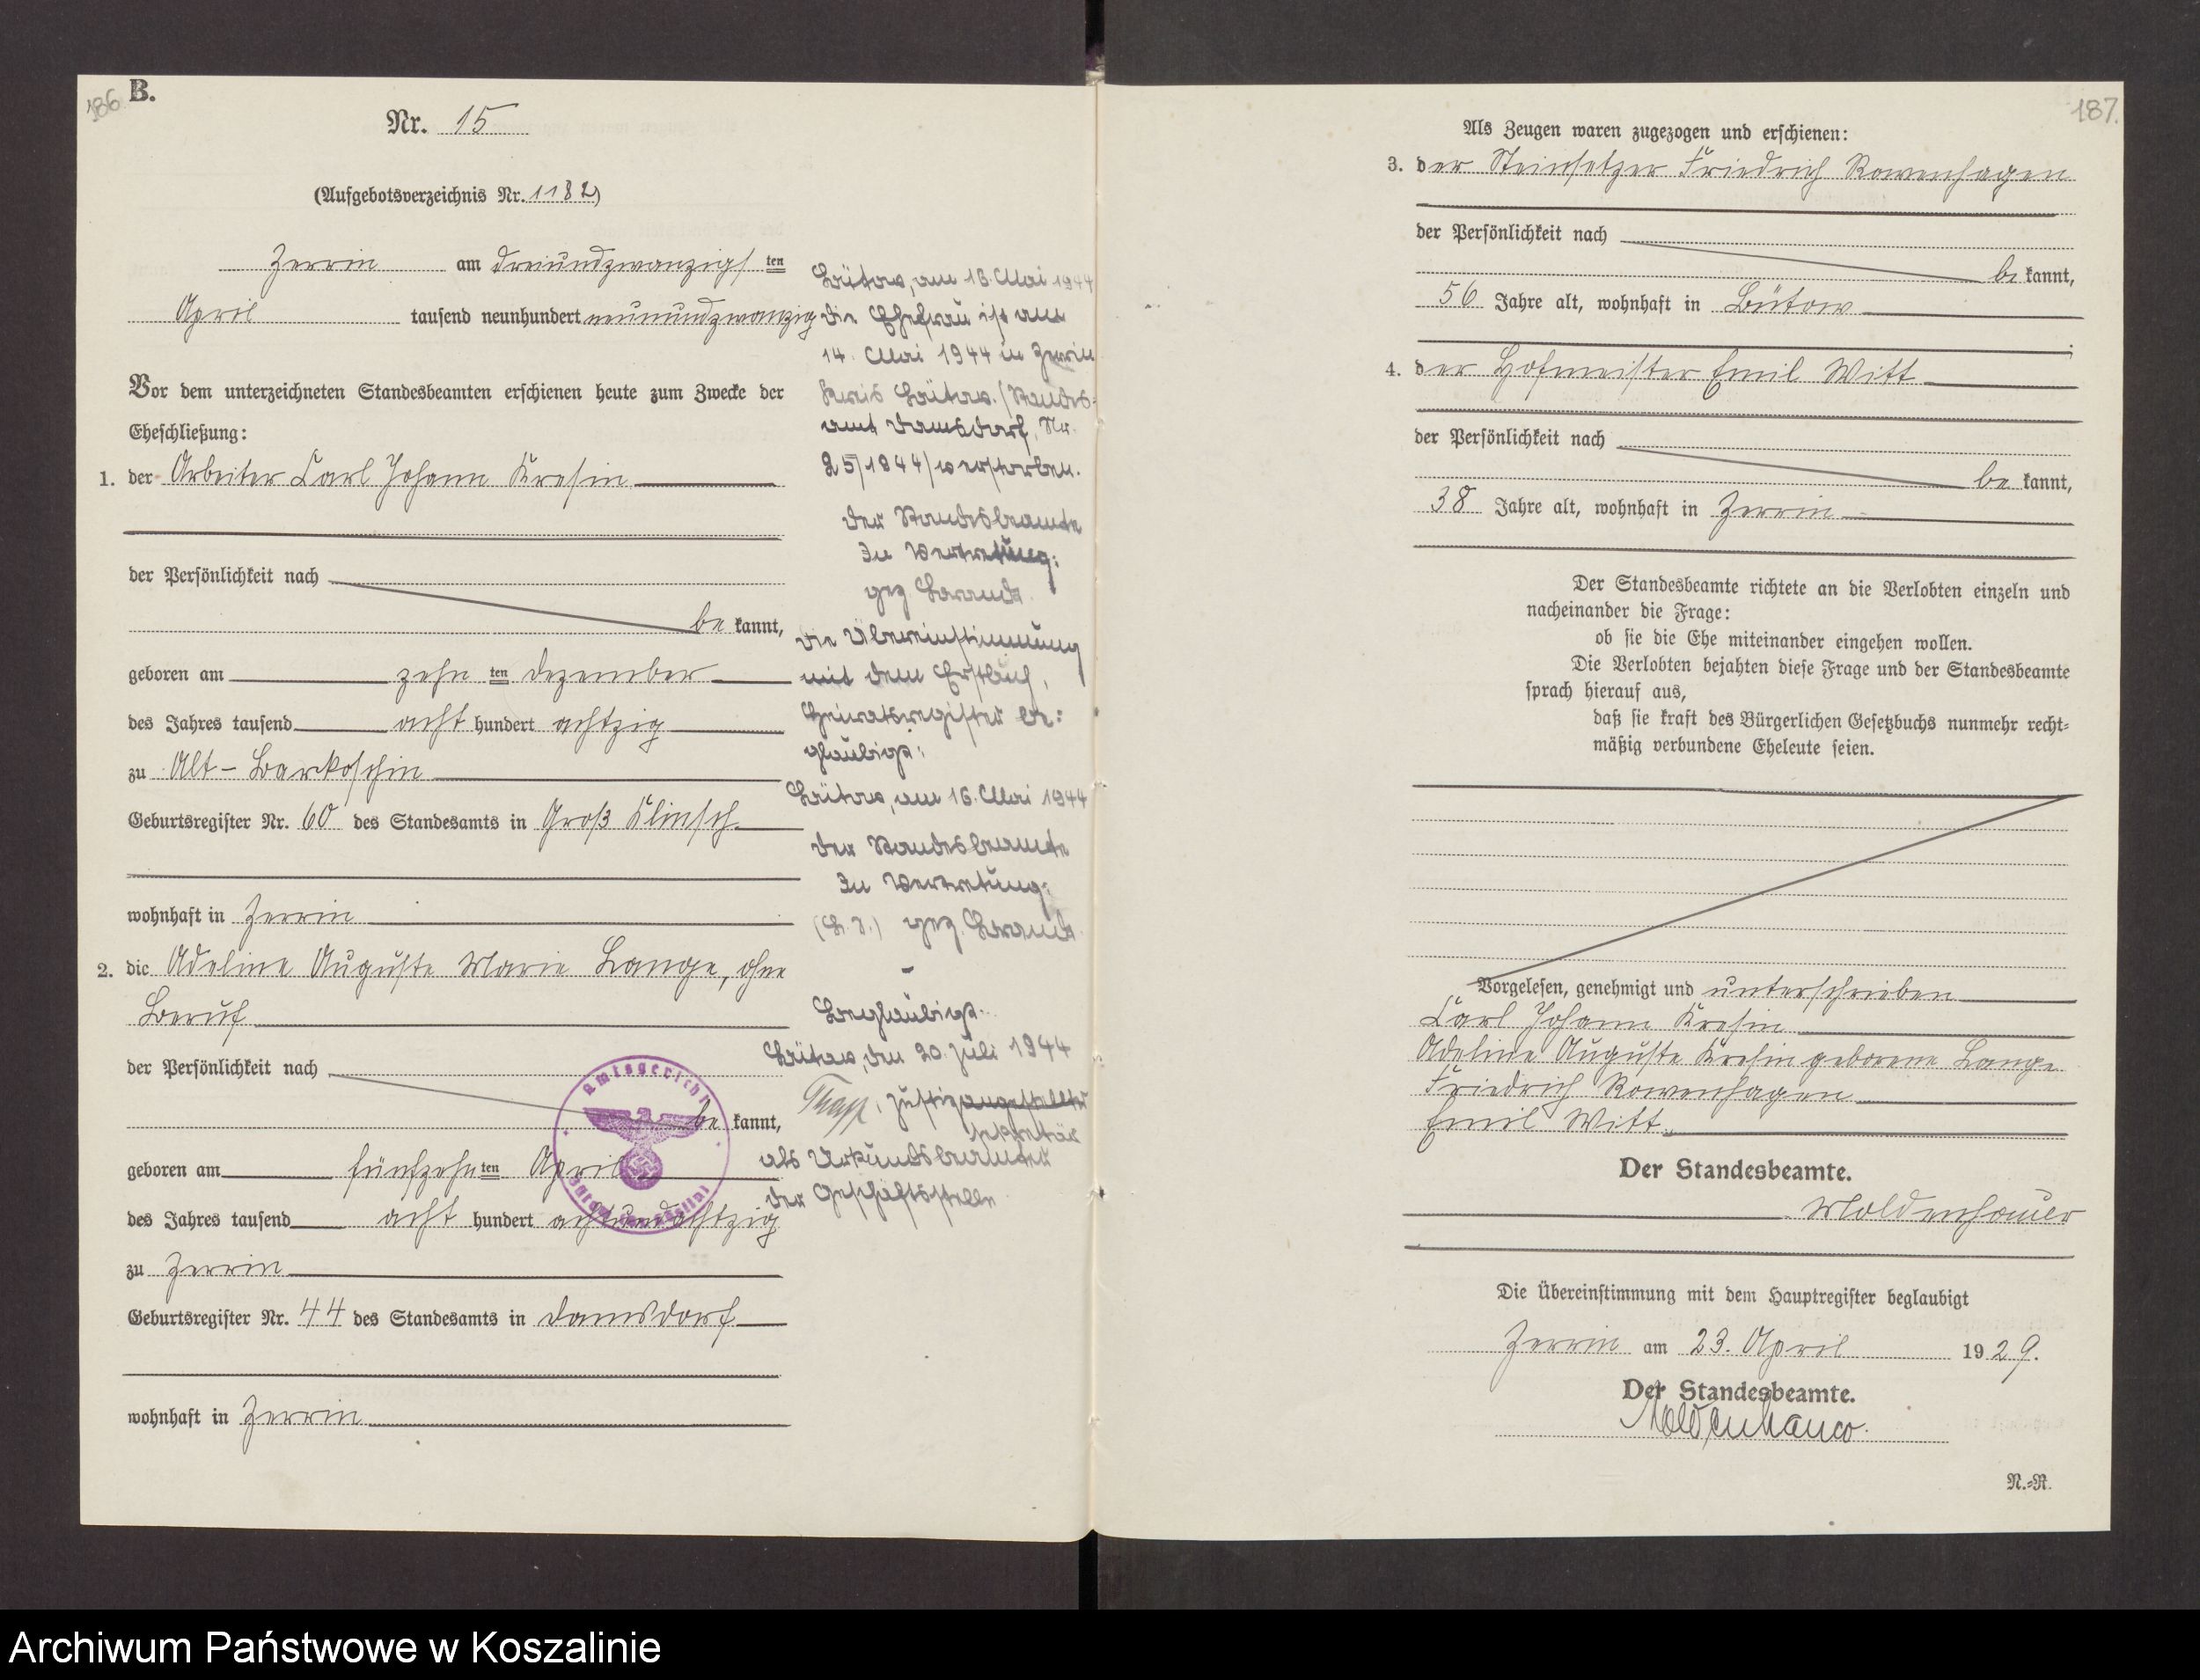 186
B.
Nr. 15
(Aufgebotsverzeichnis Nr. 1182)
Zerrin am dreiundzwanzigsten
April tausend neunhundert neunundzwanzig
Vor dem unterzeichneten Standesbeamten erschienen heute zum Zwecke der
Eheschließung:
1. der Arbeiter Carl Johann Kresin
der Persönlichkeit nach
be kannt,
geboren am zehn ten Dezember
des Jahres tausend acht hundert achtzig
zu Alt-Barkoschin
Geburtsregister Nr. 60 des Standesamts in Groß Klinsch
wohnhaft in Zerrin
2. die Adeline Auguste Marie Lange, ohne
Beruf
der Persönlichkeit nach
be kannt,
geboren am fünfzehn ten April
des Jahres tausend acht hundert achtundachtzig
zu Zerrin
Geburtsregister Nr. 44 des Standesamts in Damsdorf
wohnhaft in Zerrin
Bütow, am 16. Mai 1944
Die Ehefrau ist am
14. Mai 1944 in Zerrin
Kreis Bütow (Standes-
amt Damsdorf, Nr.
25/1944) verstorben.
Der Standesbeamte
In Vertretung:
gez.
Die Übereinstimmung
mit dem Erstbuch,
Heiratsregister be-
glaubigt:
Bütow, am 16. Mai 1944
Der Standesbeamte
In Vertretung:
(L. S.) gez.
Beglaubigt.
Bütow, den 20. Juli 1944
Justizangestellter
sekretär
als Urkundsbeamter
der Geschäftsstelle
Amtsgericht
187.
Als Zeugen waren zugezogen und erschienen:
3. der Steinsetzer Friedrich Rowenhagen
der Persönlichkeit nach
be kannt,
56 Jahre alt, wohnhaft in Bütow
4. der Hofmeister Emil Witt
der Persönlichkeit nach
be kannt,
38 Jahre alt, wohnhaft in Zerrin
Der Standesbeamte richtete an die Verlobten einzeln und
nacheinander die Frage:
ob sie die Ehe miteinander eingehen wollen.
Die Verlobten bejahten diese Frage und der Standesbeamte
sprach hierauf aus,
daß sie kraft des Bürgerlichen Gesetzbuchs nunmehr recht-
mäßig verbundene Eheleute seien.
Vorgelesen, genehmigt und unterschrieben
Carl Johann Kresin
Adeline Auguste Kresin geborene Lange
Friedrich Rowenhagen
Emil Witt
Der Standesbeamte.
Moldenhauer
Die Übereinstimmung mit dem Hauptregister beglaubigt
Zerrin am 23. April 1929.
Der Standesbeamte.
Moldenhauer
N.-R.
Archiwum Państwowe w Koszalinie